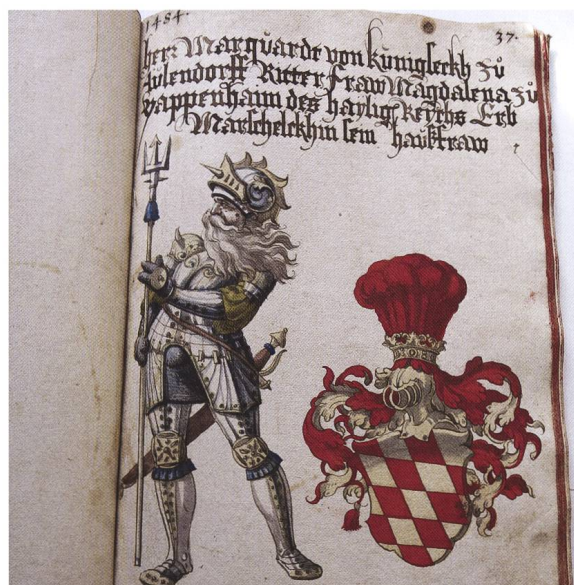 1484.
37.
herr Marquardt von künigseckh zů
Aulendorff Ritter, Fraw Magdalena zů
pappenhaim des haylig Reychs Erb
Marschelckhin sein haußfraw